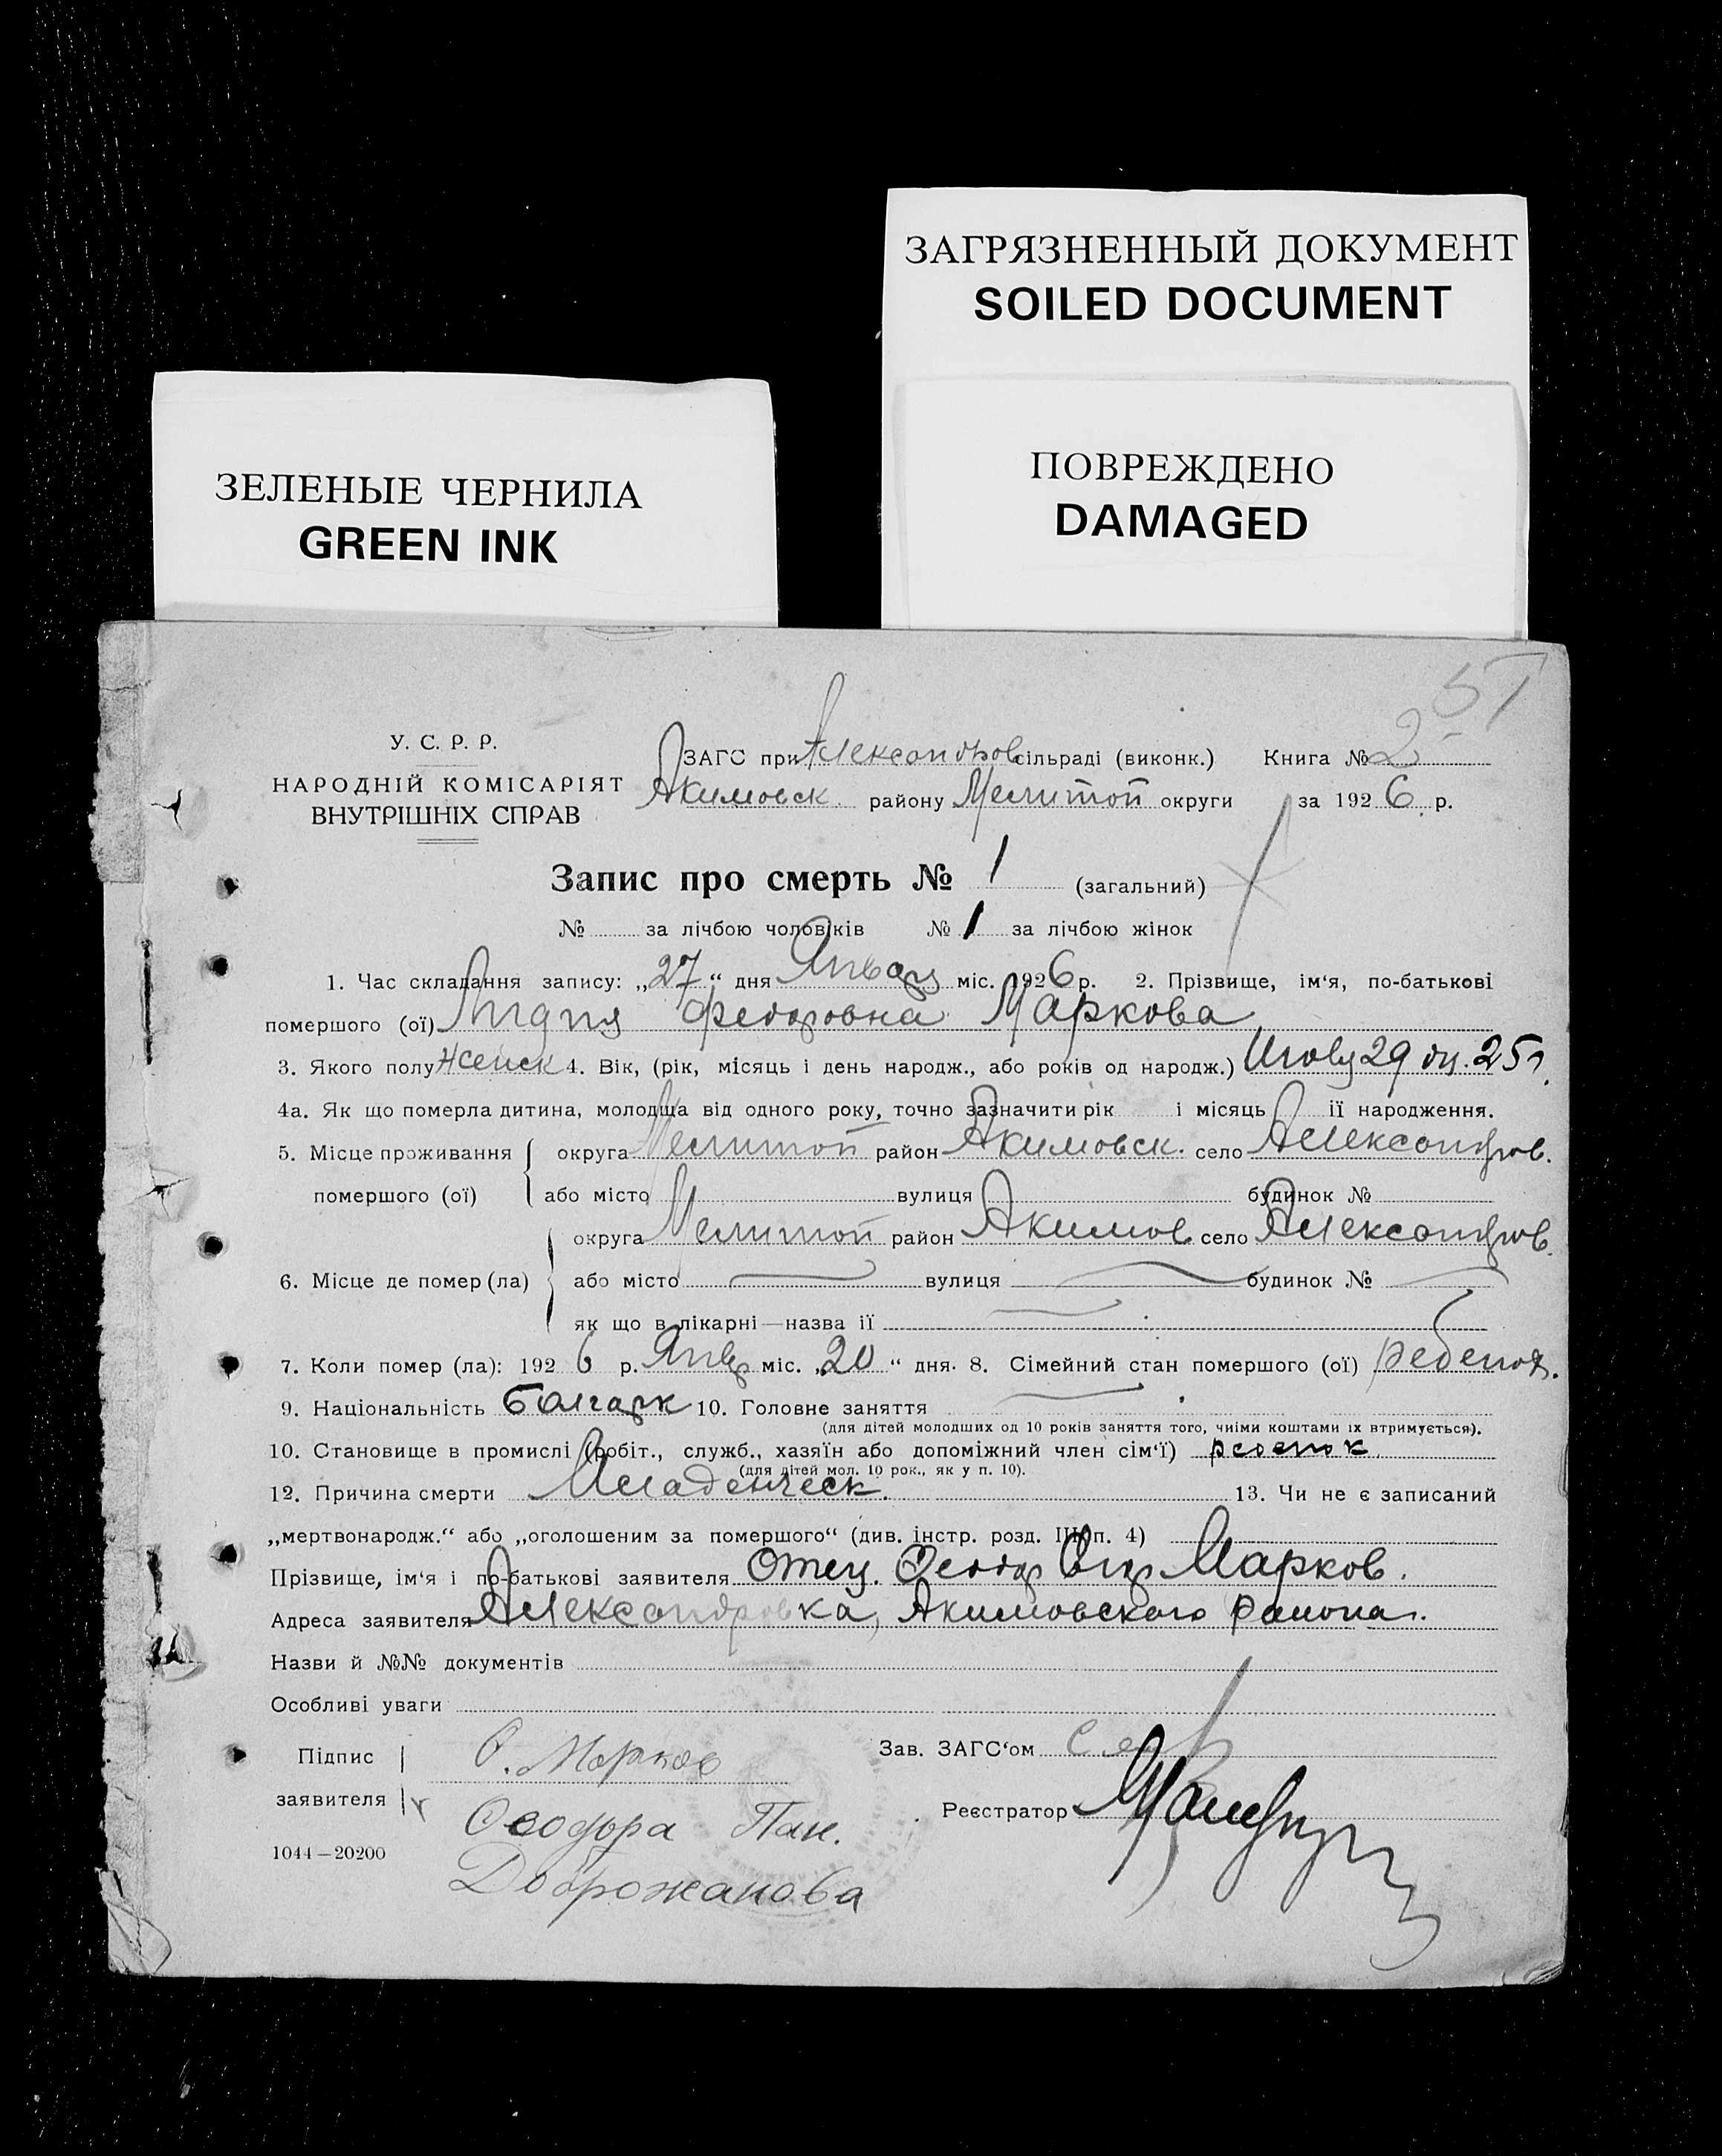 ЗАГРЯЗНЕННЫЙ ДОКУМЕНТ
SOILED DOCUMENT
ПОВРЕЖДЕНО
DAMAGED
ЗЕЛЕНЫЕ ЧЕРНИЛА
GREEN INK
51
У. С. Р. Р.
НАРОДНІЙ КОМІСАРІЯТ
ВНУТРІШНІХ СПРАВ
ЗАГС при Александров сільраді (виконк.) Книга № 2
Акимовск. району Мелитоп округи за 1926 р.
Запис про смерть № 1 (загальний)
№ за лічбою чоловіків № 1 за лічбою жінок
1. Час складання запису: „27“ дня Января міс. 1926 р. 2. Прізвище, ім‘я, по-батькові
помершого (ої) Лидия Федоровна Маркова
3. Якого полу женск 4. Вік, (рік, місяць і день народж., або років од народж.) Июля 29 25 г.
4а. Як що померла дитина, молодща від одного року, точно зазначити рік і місяць її народження.
5. Місце проживання округа Мелитоп район Акимовск. село Александров.
помершого (ої) або місто вулиця будинок №
округа Мелитоп район Акимов село Александров.
6. Місце де помер (ла) або місто вулиця будинок №
як що в лікарні — назва її
7. Коли помер (ла): 1926 р. Янв міс. „20“ дня. 8. Сімейний стан помершого (ої) ребенок.
9. Національність Болгарк 10. Головне заняття
(для дітей молодших од 10 років заняття того, чиїми коштами їх втримується).
10. Становище в промислі (робіт., служб., хазяїн або допоміжний член сім‘ї) ребенок.
(для дітей мол. 10 рок., як у п. 10).
12. Причина смерти Младенческ. 13. Чи не є записаний
„мертвонародж.“ або „оголошеним за помершого“ (див. інстр. розд. III п. 4)
Прізвище, ім‘я і по-батькові заявителя Отец. Федор Марков.
Адреса заявителя Александровка, Акимовского района.
Назви й №№ документів
Особливі уваги
Підпис Ф. Марков Зав. ЗАГС‘ом
заявителя Феодора Пан. Реєстратор
1044—20200
Доброжанова